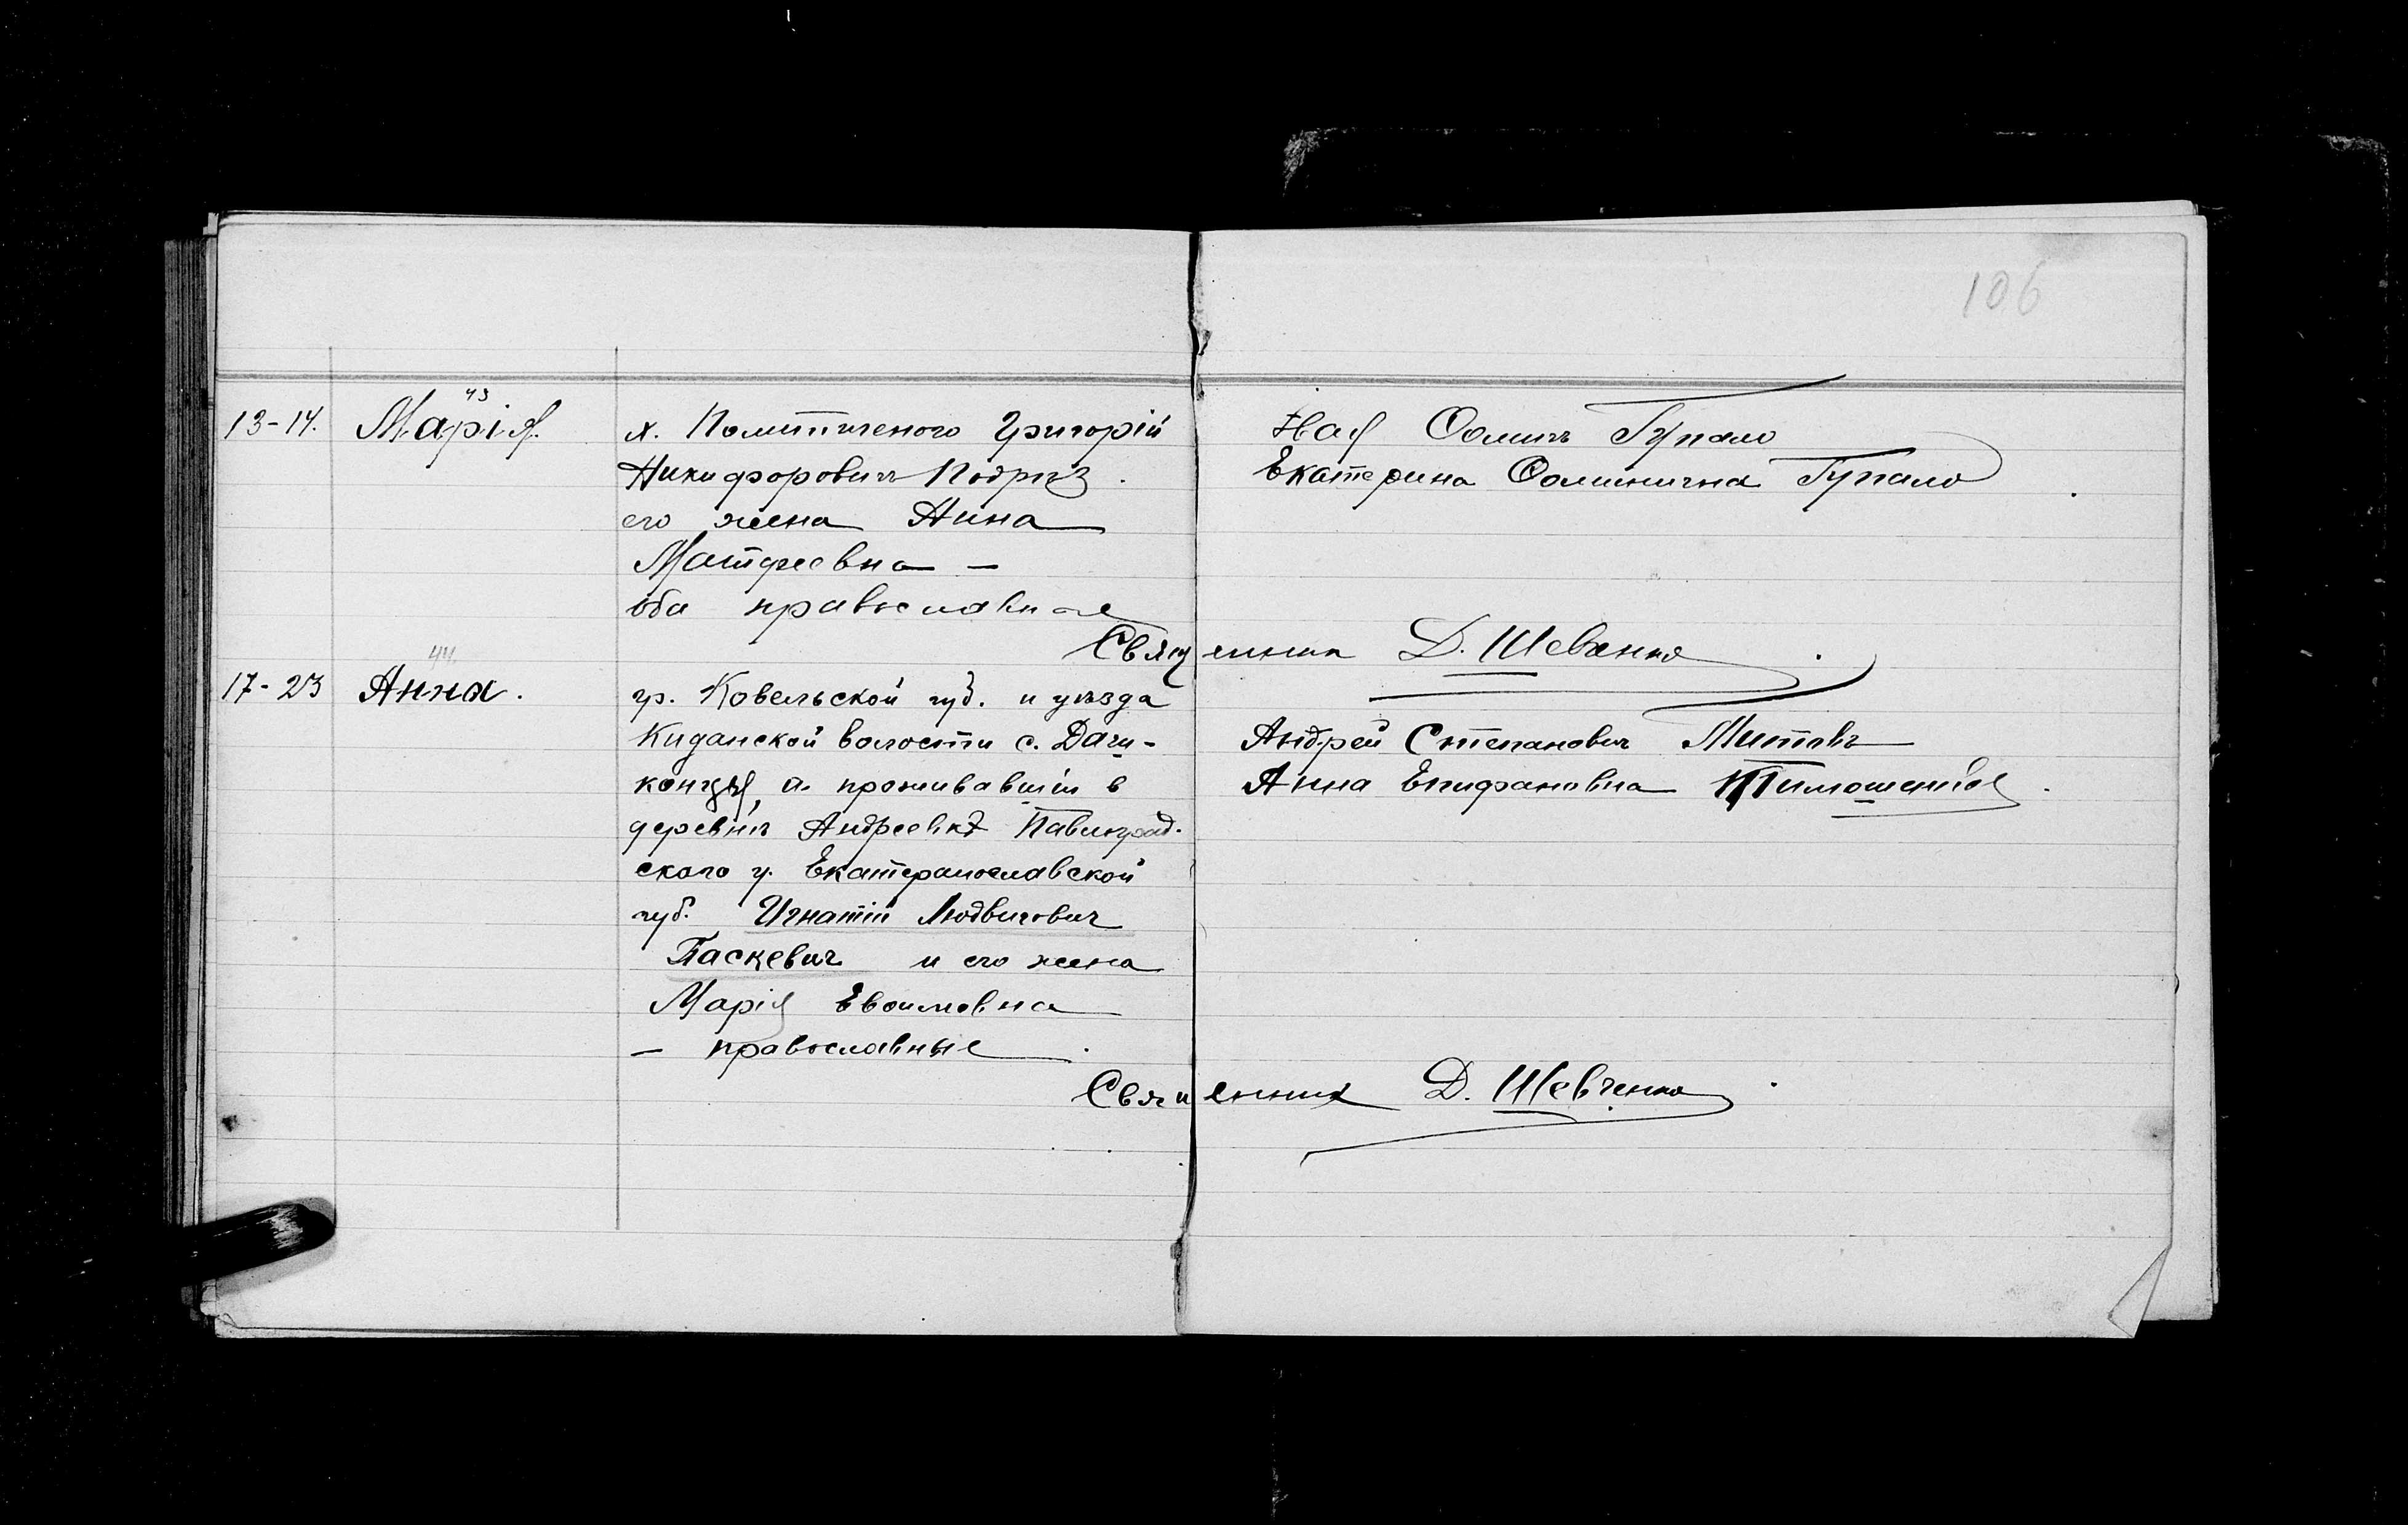 106
43
13-14. Марія.
х. Политиченого Григорій
Никифорович Подрѣз.
его жена Анна
Матфеевна —
оба православные
Іоаѳ Ѳомичъ Гупало
Екатерина Ѳоминична Гупало.
Священник Д. Шевченко.
44.
17-23 Анна.
гр. Ковельской губ. и уѣзда
волости с. Дачи-
концы, а проживавшій в
деревнѣ Андреевкѣ Павлоград-
ского у. Екатеринославской
губ. Игнатій Людвигович
Паскевич и его жена
Марія Евѳимовна
— православные.
Андрей Степанович Титовъ
Анна Епифановна Тимошенко.
Священник Д. Шевченко.